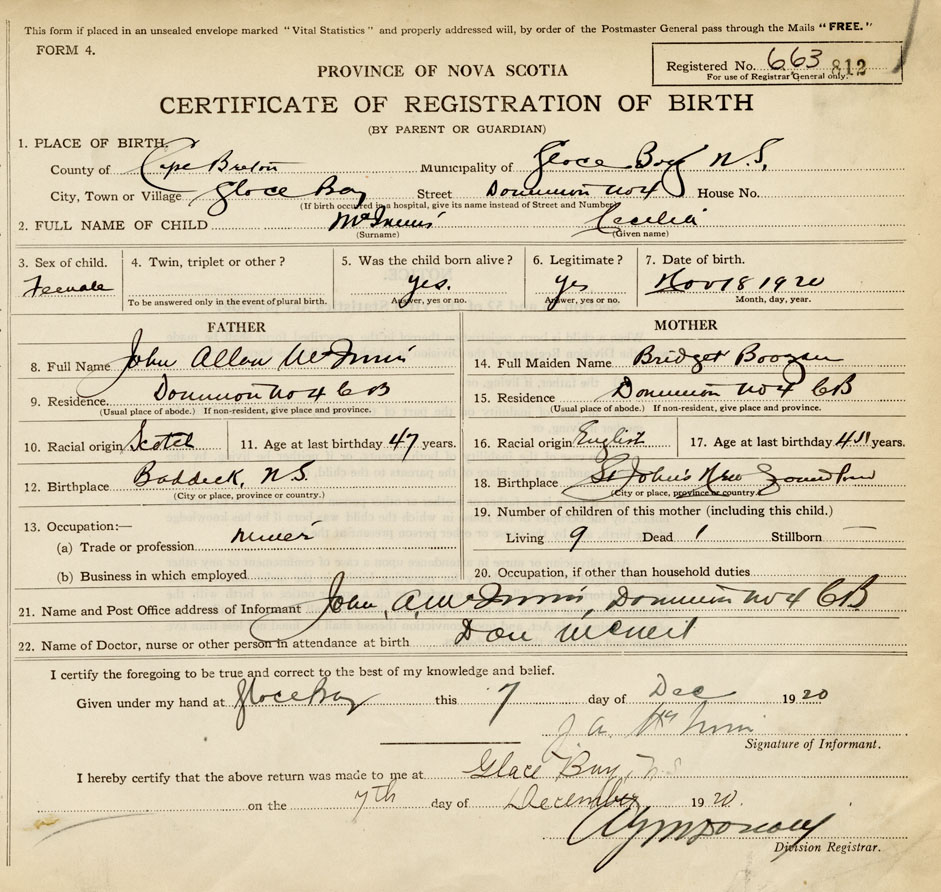 This form if placed in an unsealed envelope marked "Vital Statistics" and properly addressed will, by order of the Postmaster General pass through the Mails "FREE."
FORM 4.
Registered No. 663 812
For use of Registrar General only.
PROVINCE OF NOVA SCOTIA
CERTIFICATE OF REGISTRATION OF BIRTH
(BY PARENT OR GUARDIAN)
1. PLACE OF BIRTH.
County of Cape Breton Municipality of Glace Bay N.S.
City, Town or Village Glace Bay Street Dominion No 4 House No.
(If birth occurred in a hospital, give its name instead of Street and Number)
2. FULL NAME OF CHILD McInnis Cecilia
(Surname) (Given name)
3. Sex of child. 4. Twin, triplet or other? 5. Was the child born alive? 6. Legitimate? 7. Date of birth.
Female yes. yes Nov 18 1920
To be answered only in the event of plural birth. Answer, yes or no. Answer, yes or no. Month, day, year.
FATHER MOTHER
8. Full Name John Allan McInnis 14. Full Maiden Name Bridget
9. Residence Dominion No 4 CB 15. Residence Dominion No 4 CB
(Usual place of abode.) If non-resident, give place and province. (Usual place of abode.) If non-resident, give place and province.
10. Racial origin Scotch 11. Age at last birthday 47 years. 16. Racial origin English 17. Age at last birthday years.
12. Birthplace Baddeck, N.S. 18. Birthplace St John's New
(City or place, province or country.) (City or place, province or country.)
13. Occupation:— 19. Number of children of this mother (including this child.)
(a) Trade or profession miner Living 9 Dead 1 Stillborn —
(b) Business in which employed 20. Occupation, if other than household duties
21. Name and Post Office address of Informant John A. McInnis, Dominion No 4 CB
22. Name of Doctor, nurse or other person in attendance at birth Dan McNeil
I certify the foregoing to be true and correct to the best of my knowledge and belief.
Given under my hand at Glace Bay this 7 day of Dec 1920
J. A. McInnis
Signature of Informant.
I hereby certify that the above return was made to me at Glace Bay, N.S.
on the 7th day of December 1920.
Division Registrar.